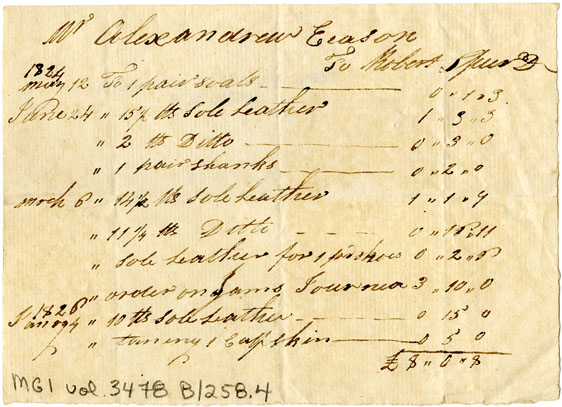 Mr Alexandrew Eason
To Robert Spurr Dr
1824
may 12 To 1 pair soals 0 " 1 " 3
June 24 " 15½ lbs Sole Leather 1 " 3 " 3
" 2 lb Ditto 0 " 3 " 0
" 1 pair shanks 0 " 2 " 0
march 6 " 14½ lbs Sole Leather 1 " 1 " 9
" 11¼ lbs Ditto 0
" Sole Leather for 1 0 " 2 "
" order on Jams 3 " 10 " 0
1826
" 10 lbs Sole Leather 0 15 0
" 1 Calf skin 0 5 0
£ 8 " 0 " 8
MG1 vol. 3478 B/258.4